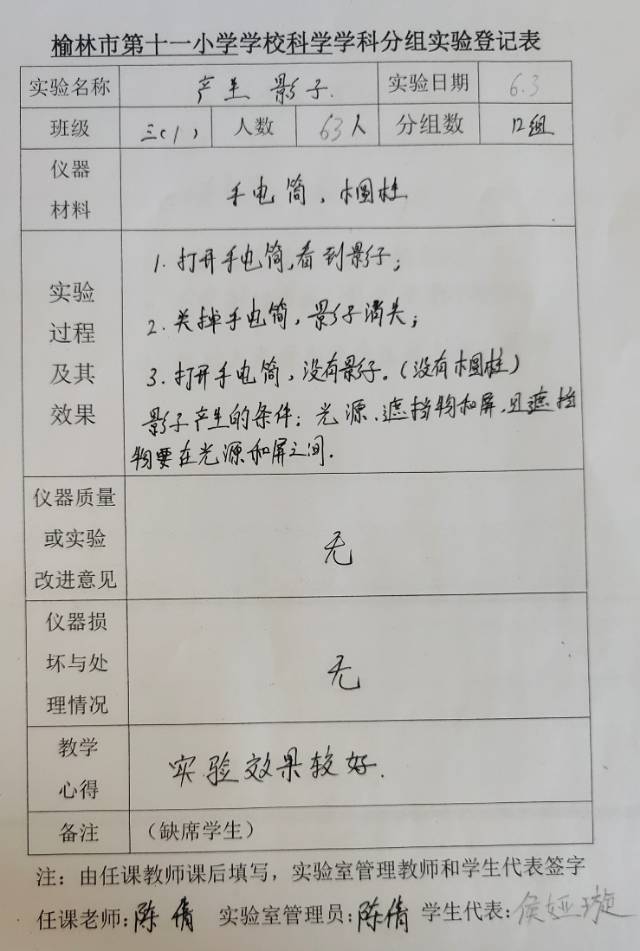 榆林市第十一小学学校科学学科分组实验登记表
实验名称 产生影子. 实验日期 6.3
班级 三(1) 人数 63人 分组数 12组
仪器材料 手电筒,木圆柱
实验过程及其效果
1. 打开手电筒,看到影子;
2. 关掉手电筒,影子消失;
3. 打开手电筒,没有影子。(没有木圆柱)
影子产生的条件:光源、遮挡物和屏,且遮挡
物要在光源和屏之间.
仪器质量或实验改进意见 无
仪器损坏与处理情况 无
教学心得 实验效果较好.
备注 (缺席学生)
注:由任课教师课后填写,实验室管理教师和学生代表签字
任课老师:陈倩 实验室管理员:陈倩 学生代表:侯娅璇